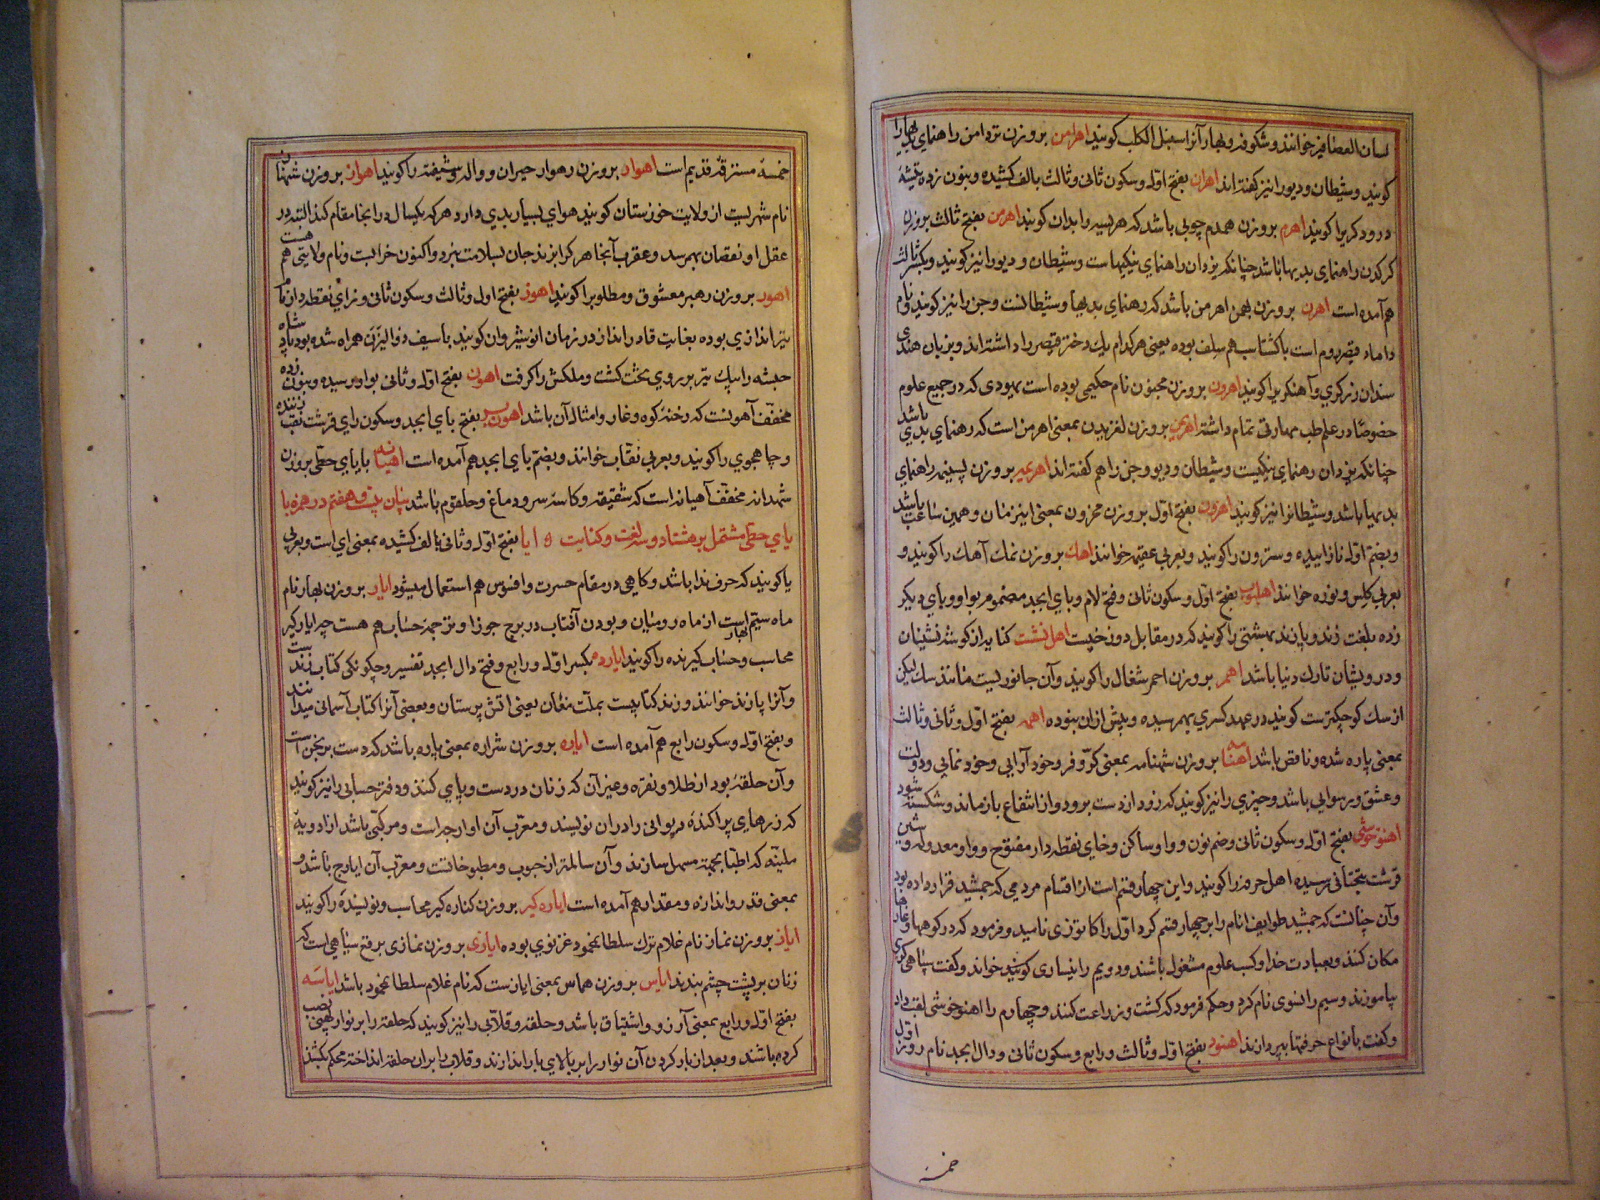 لسان العصافیر خوانند و شکوفه و بهار آنرا سنبل الکلب کویند اهرامن بر وزن تردامن راهنمای بدیها را
کویند و شیطان و دیو را نیز کفته اند اهران بفتح اول و سکون ثانی و ثالث بالف کشیده و بنون زده تیشهٔ
درودکر را کویند اهرم بر وزن همدم چوبی باشد که هریسه را بدان کوبند اهرمن بفتح ثالث بر وزن
کرکدن راهنمای بدیها باشد چنانکه یزدان راهنمای نیکیهاست و شیطان و دیو را نیز کویند و بکسر ثالث
هم آمده است اهرن بر وزن بهمن اهرمن باشد که رهنمای بدیها و شیطانست و جن را نیز کویند و نام
داماد قیصر روم است با کشتاسب هم سلف بوده یعنی هر کدام یک دختر قیصر را داشته اند و بزبان هندی
سندان زرکری و آهنکری را کویند اهرون بر وزن مجنون نام حکیمی بوده است یهودی که در جمیع علوم
خصوصا در علم طب مهارتی تمام داشته اهریمن بر وزن لغزیدن بمعنی اهرمن است که رهنمای بدی باشد
چنانکه یزدان رهنمای نیکیست و شیطان و دیو و جن را هم کفته اند اهریمه بر وزن پسینه راهنمای
بدیها باشد و شیطانرا نیز کویند اهزون بفتح اول بر وزن محزون بمعنی این زمان و همین ساعت باشد
و بضم اول نازاینده و سترون را کویند و بعربی عقیمه خوانند اهک بر وزن نمک آهک را کویند و
بعربی کلس و نوره خوانند اهلبوب بفتح اول و سکون ثانی و فتح لام و بای ابجد مضموم بواو و بای دیکر
زده بلغت زند و پازند بهشتی را کویند که در مقابل دوزخیست اهل نشست کنایه از کوشه نشینان
و درویشان تارک دنیا باشد اهمر بر وزن احمر شغال را کویند و آن جانوریست مانند سک لیکن
از سک کوچکترست کویند در عهد کسری بهم رسیده و پیش ازان نبوده اهمه بفتح اول و ثانی و ثالث
بمعنی پاره شده و ناقص باشد اهنامه بر وزن شهنامه بمعنی کر و فر و خودآرایی و خودنمایی و دولت
و عشق و رسوایی باشد و چیزی را نیز کویند که زود از دست برود و از انتفاع بازماند و شکسته شود
اهنوخوشی بفتح اول و سکون ثانی و ضم نون و واو ساکن و خای نقطه دار مفتوح و واو معدوله و شین
قرشت بتحتانی رسیده اهل حرفه را کویند و این چهارم قسم است از اقسام مردمی که جمشید قرار داده بود
و آن چنانست که جمشید طوایف انام را بر چهار قسم کرد اول را کاتوزی نامید و فرمود که در کوهها و غارها
مکان کنند و بعبادت خدا و کسب علوم مشغول باشند و دویم را نیساری کویند خواند و کفت سپاهی کری
بیاموزند و سیم را نسودی نام کرد و حکم فرمود که کشت و زراعت کنند و چهارم را اهنوخوشی لقب داد
و کفت بانواع حرفتها بپردازند اهنود بفتح اول و ثالث و رابع و سکون ثانی و دال ابجد نام روز اول
خمسه
خمسهٔ مسترقهٔ قدیم است اهوار بر وزن رهوار حیران و واله و شیفته را کویند اهواز بر وزن شهناز
نام شهریست از ولایت خوزستان کویند هوای بسیار بدی دارد هر که یکسال در انجا مقام کند البته در
عقل او نقصان بهم رسد و عقرب آنجا هر کرا بزند جان بسلامت نبرد و اکنون خرابست و نام ولایتی هم هست
اهور بر وزن رهبر معشوق و مطلوب را کویند اهوز بفتح اول و ثالث و سکون ثانی و زای نقطه دار نام
تیراندازی بوده بغایت قادرانداز در زمان انوشیروان کویند با سیف ذوالیزن همراه شده بود پادشاه
حبشه را بیک تیر بر روی تخت کشت و ملکش را کرفت اهون بفتح اول و ثانی بواو رسیده و بنون زده
مخفف آهونست که رخنهٔ کوه و غار و امثال آن باشد اهون بر بفتح بای ابجد و سکون رای قرشت نقب زننده
و چاهجوی را کویند و بعربی نقاب خوانند و بضم بای ابجد هم آمده است اهیانه با یای حطی بر وزن
شهدانه مخفف آهیانه است که شقیقه و کاسهٔ سر و دماغ و حلقوم باشد بیان بیست و هفتم در همزه با
یای حطی مشتمل بر هشتاد و سه لغت و کنایت ایا بفتح اول و ثانی بالف کشیده بمعنی ای است و بعربی
یا کویند که حرف ندا باشد و کاهی در مقام حسرت و افسوس هم استعمال میشود ایار بر وزن بهار نام
ماه سیم است از ماه رومیان و بودن آفتاب در برج جوزا و ترجمهٔ حساب هم هست چه ایارکیر
محاسب و حساب کیرنده را کویند ایارده بکسر اول و رابع و فتح دال ابجد تفسیر و چکونکی کتاب زند است
و آنرا پازند خوانند و زند کتابیست بملت مغان یعنی اتش پرستان و بعضی آنرا کتاب آسمانی میدانند
و بفتح اول و سکون رابع هم آمده است ایاره بر وزن شراره بمعنی یاره باشد که دست برنجن است
و آن حلقهٔ بود از طلا و نقره و غیر آن که زنان در دست و پای کنند و دفتر حسابی را نیز کویند
که زرهای پراکندهٔ دیوانی را در ان نویسند و معرب آن اوارجه است و مرکبی باشد از ادویهٔ
ملینه که اطبا بجهة مسهل سازند و آن سالمتر از حبوب و مطبوخاتست و معرب آن ایارج باشد و
بمعنی قدر و اندازه و مقدار هم آمده است ایاره کیر بر وزن کناره کیر محاسب و نویسنده را کویند
ایاز بر وزن نماز نام غلام ترک سلطان محمود غزنوی بوده ایازی بر وزن نمازی برقع سیاهی است که
زنان بر پشت چشم بندند ایاس بر وزن هماس بمعنی ایازست که نام غلام سلطان محمود باشد ایاسه
بفتح اول و رابع بمعنی آرزو و اشتیاق باشد و حلقه و قلابی را نیز کویند که حلقه را بر نوار پهنی نصب
کرده باشند و بعد از بار کردن آن نوار را بر بالای بار اندازند و قلاب را بران حلقه انداخته محکم بکشند